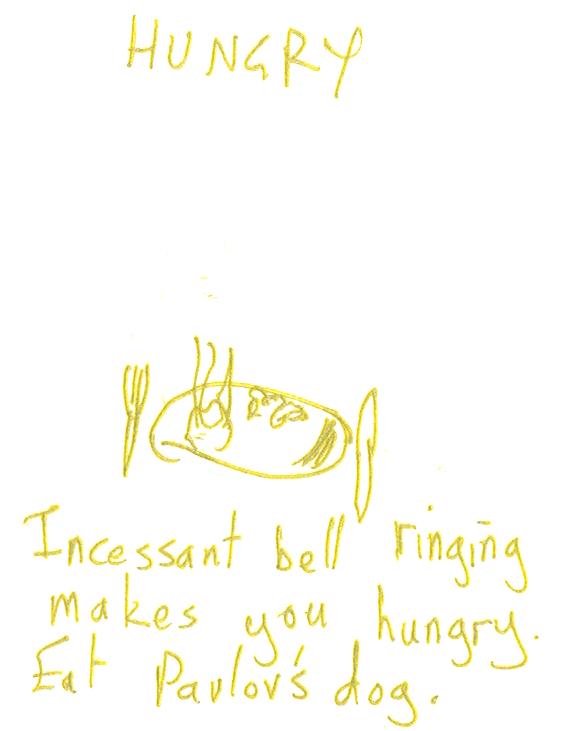 HUNGRY
Incessant bell ringing
makes you hungry.
Eat Pavlov's dog.